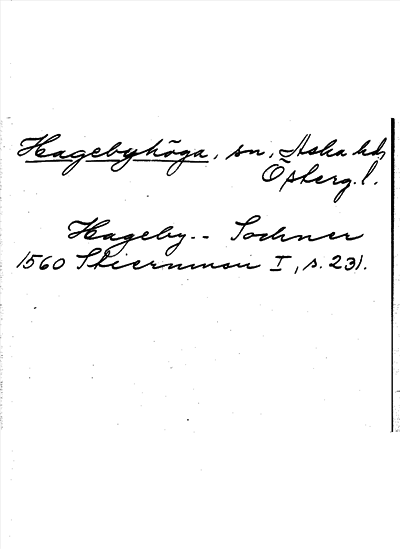 Hagebyhöga, sn, Aska hd,
Österg.l.
Hageby-- Sochner
1560 Stiernman I, s. 231.